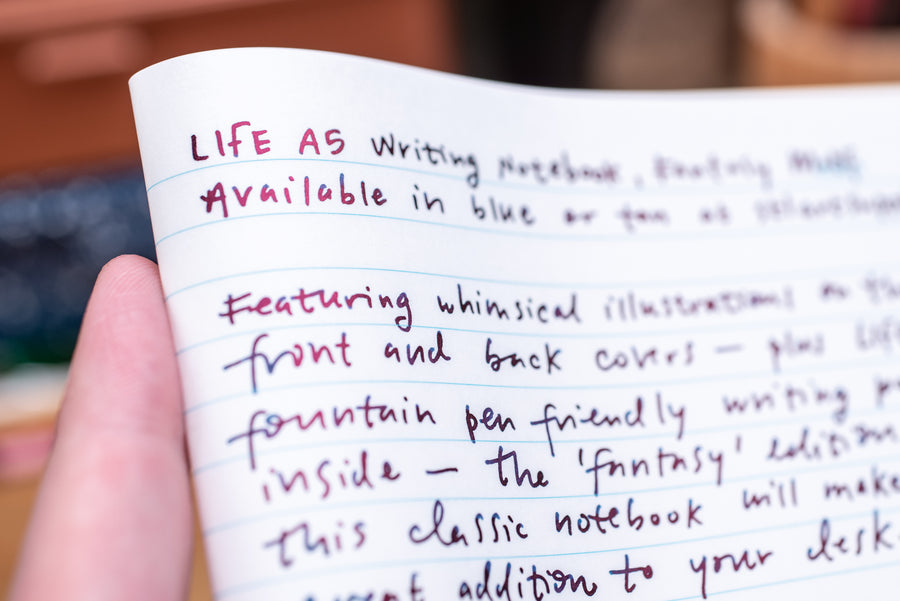 LIFE A5 Writing Notebook,
Available in blue or tan at
Featuring whimsical illustrations on
front and back covers — plus
fountain pen friendly writing
inside — the 'fantasy' edition
this classic notebook will make
addition to your desk.